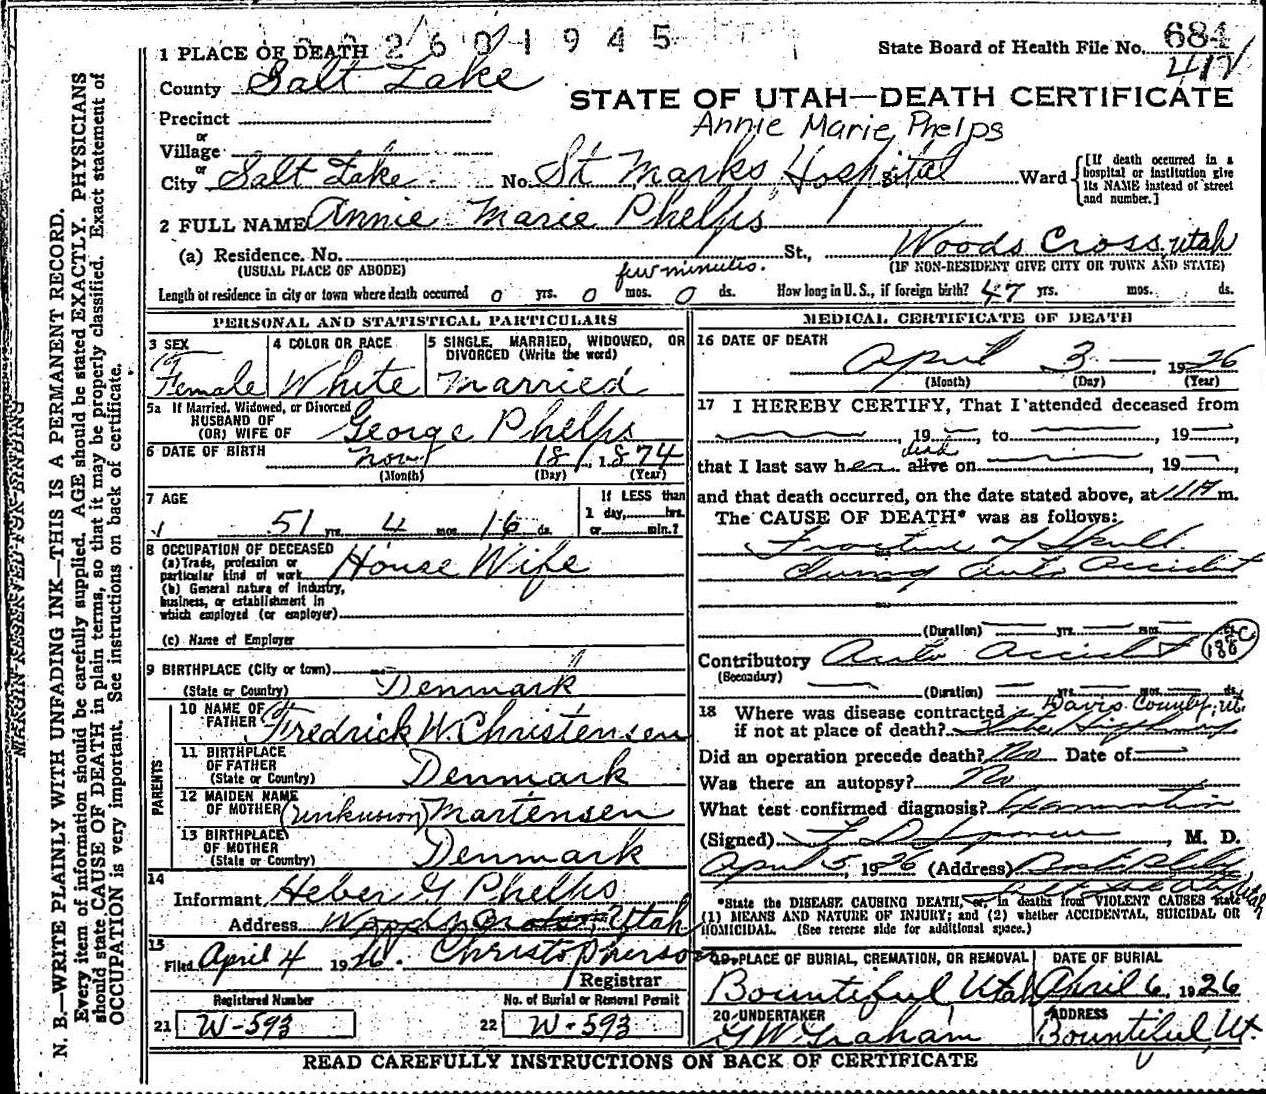 002601945
1 PLACE OF DEATH
State Board of Health File No. 684
412
County Salt Lake
STATE OF UTAH—DEATH CERTIFICATE
Precinct
Annie Marie Phelps
or
Village
or
City Salt Lake No. St Marks Hospital St. Ward
[If death occurred in a hospital or institution give its NAME instead of street and number.]
2 FULL NAME Annie Marie Phelps
(a) Residence. No. St., Woods Cross, Utah
(USUAL PLACE OF ABODE) (IF NON-RESIDENT GIVE CITY OR TOWN AND STATE)
few minutes.
Length of residence in city or town where death occurred 0 yrs. 0 mos. 0 ds. How long in U. S., if foreign birth? 47 yrs. mos. ds.
PERSONAL AND STATISTICAL PARTICULARS
3 SEX 4 COLOR OR RACE 5 SINGLE, MARRIED, WIDOWED, OR DIVORCED (Write the word)
Female White Married
5a If Married, Widowed, or Divorced
HUSBAND OF
(OR) WIFE OF George Phelps
6 DATE OF BIRTH Nov 18, 1874
(Month) (Day) (Year)
7 AGE
51 yrs. 4 mos. 16 ds.
If LESS than
1 day, hrs.
or min.?
8 OCCUPATION OF DECEASED
(a) Trade, profession or
particular kind of work House Wife
(b) General nature of industry,
business, or establishment in
which employed (or employer)
(c) Name of Employer
9 BIRTHPLACE (City or town)
(State or Country) Denmark
PARENTS
10 NAME OF
FATHER Fredrick W. Christensen
11 BIRTHPLACE
OF FATHER
(State or Country) Denmark
12 MAIDEN NAME
OF MOTHER (unknown) Martensen
13 BIRTHPLACE
OF MOTHER
(State or Country) Denmark
14
Informant Heber G Phelps
Address Woods Cross, Utah
15
Filed April 4 1926. Christopherson
Registrar
Registered Number No. of Burial or Removal Permit
21 W-593 22 W-593
MEDICAL CERTIFICATE OF DEATH
16 DATE OF DEATH
April 3 1926
(Month) (Day) (Year)
17 I HEREBY CERTIFY, That I attended deceased from
, 19 , to , 19 ,
dead
that I last saw her alive on , 19 ,
and that death occurred, on the date stated above, at m.
The CAUSE OF DEATH* was as follows:
Fracture of Skull
During Auto Accident
(Duration) yrs. mos. ds.
Contributory Auto Accident
188 C
(Secondary)
(Duration) yrs. mos. ds.
18 Where was disease contracted Davis County, Ut.
if not at place of death? State Highway
Did an operation precede death? No Date of
Was there an autopsy? No
What test confirmed diagnosis? Examination
(Signed) , M. D.
April 5, 1926 (Address)
*State the DISEASE CAUSING DEATH, or, in deaths from VIOLENT CAUSES state
(1) MEANS AND NATURE OF INJURY; and (2) whether ACCIDENTAL, SUICIDAL OR
HOMICIDAL. (See reverse side for additional space.)
19 PLACE OF BURIAL, CREMATION, OR REMOVAL DATE OF BURIAL
Bountiful Utah April 6, 1926
20 UNDERTAKER ADDRESS
G W Graham Bountiful, Ut.
READ CAREFULLY INSTRUCTIONS ON BACK OF CERTIFICATE
MARGIN RESERVED FOR BINDING
N. B.—WRITE PLAINLY WITH UNFADING INK—THIS IS A PERMANENT RECORD.
Every item of information should be carefully supplied. AGE should be stated EXACTLY. PHYSICIANS
should state CAUSE OF DEATH in plain terms, so that it may be properly classified. Exact statement of
OCCUPATION is very important. See instructions on back of certificate.